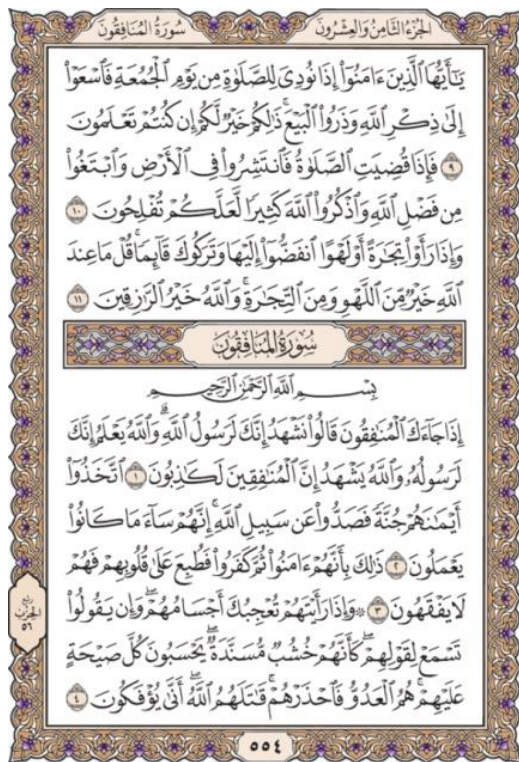 الجُزْءُ الثَّامِنُ وَالعِشْرُونَ
سُورَةُ المُنَافِقُونَ
يَٰٓأَيُّهَا ٱلَّذِينَ ءَامَنُوٓاْ إِذَا نُودِيَ لِلصَّلَوٰةِ مِن يَوۡمِ ٱلۡجُمُعَةِ فَٱسۡعَوۡاْ
إِلَىٰ ذِكۡرِ ٱللَّهِ وَذَرُواْ ٱلۡبَيۡعَۚ ذَٰلِكُمۡ خَيۡرٞ لَّكُمۡ إِن كُنتُمۡ تَعۡلَمُونَ
٩ فَإِذَا قُضِيَتِ ٱلصَّلَوٰةُ فَٱنتَشِرُواْ فِي ٱلۡأَرۡضِ وَٱبۡتَغُواْ
مِن فَضۡلِ ٱللَّهِ وَٱذۡكُرُواْ ٱللَّهَ كَثِيرٗا لَّعَلَّكُمۡ تُفۡلِحُونَ ١٠
وَإِذَا رَأَوۡاْ تِجَٰرَةً أَوۡ لَهۡوًا ٱنفَضُّوٓاْ إِلَيۡهَا وَتَرَكُوكَ قَآئِمٗاۚ قُلۡ مَا عِندَ
ٱللَّهِ خَيۡرٞ مِّنَ ٱللَّهۡوِ وَمِنَ ٱلتِّجَٰرَةِۚ وَٱللَّهُ خَيۡرُ ٱلرَّٰزِقِينَ ١١
سُورَةُ المُنَافِقُونَ
بِسۡمِ ٱللَّهِ ٱلرَّحۡمَٰنِ ٱلرَّحِيمِ
إِذَا جَآءَكَ ٱلۡمُنَٰفِقُونَ قَالُواْ نَشۡهَدُ إِنَّكَ لَرَسُولُ ٱللَّهِۗ وَٱللَّهُ يَعۡلَمُ إِنَّكَ
لَرَسُولُهُۥ وَٱللَّهُ يَشۡهَدُ إِنَّ ٱلۡمُنَٰفِقِينَ لَكَٰذِبُونَ ١ ٱتَّخَذُوٓاْ
أَيۡمَٰنَهُمۡ جُنَّةٗ فَصَدُّواْ عَن سَبِيلِ ٱللَّهِۚ إِنَّهُمۡ سَآءَ مَا كَانُواْ
يَعۡمَلُونَ ٢ ذَٰلِكَ بِأَنَّهُمۡ ءَامَنُواْ ثُمَّ كَفَرُواْ فَطُبِعَ عَلَىٰ قُلُوبِهِمۡ فَهُمۡ
لَا يَفۡقَهُونَ ٣ ۞ وَإِذَا رَأَيۡتَهُمۡ تُعۡجِبُكَ أَجۡسَامُهُمۡۖ وَإِن يَقُولُواْ
تَسۡمَعۡ لِقَوۡلِهِمۡۖ كَأَنَّهُمۡ خُشُبٞ مُّسَنَّدَةٞۖ يَحۡسَبُونَ كُلَّ صَيۡحَةٍ
عَلَيۡهِمۡۚ هُمُ ٱلۡعَدُوُّ فَٱحۡذَرۡهُمۡۚ قَٰتَلَهُمُ ٱللَّهُۖ أَنَّىٰ يُؤۡفَكُونَ ٤
ربع
الحزب
٥٦
٥٥٤